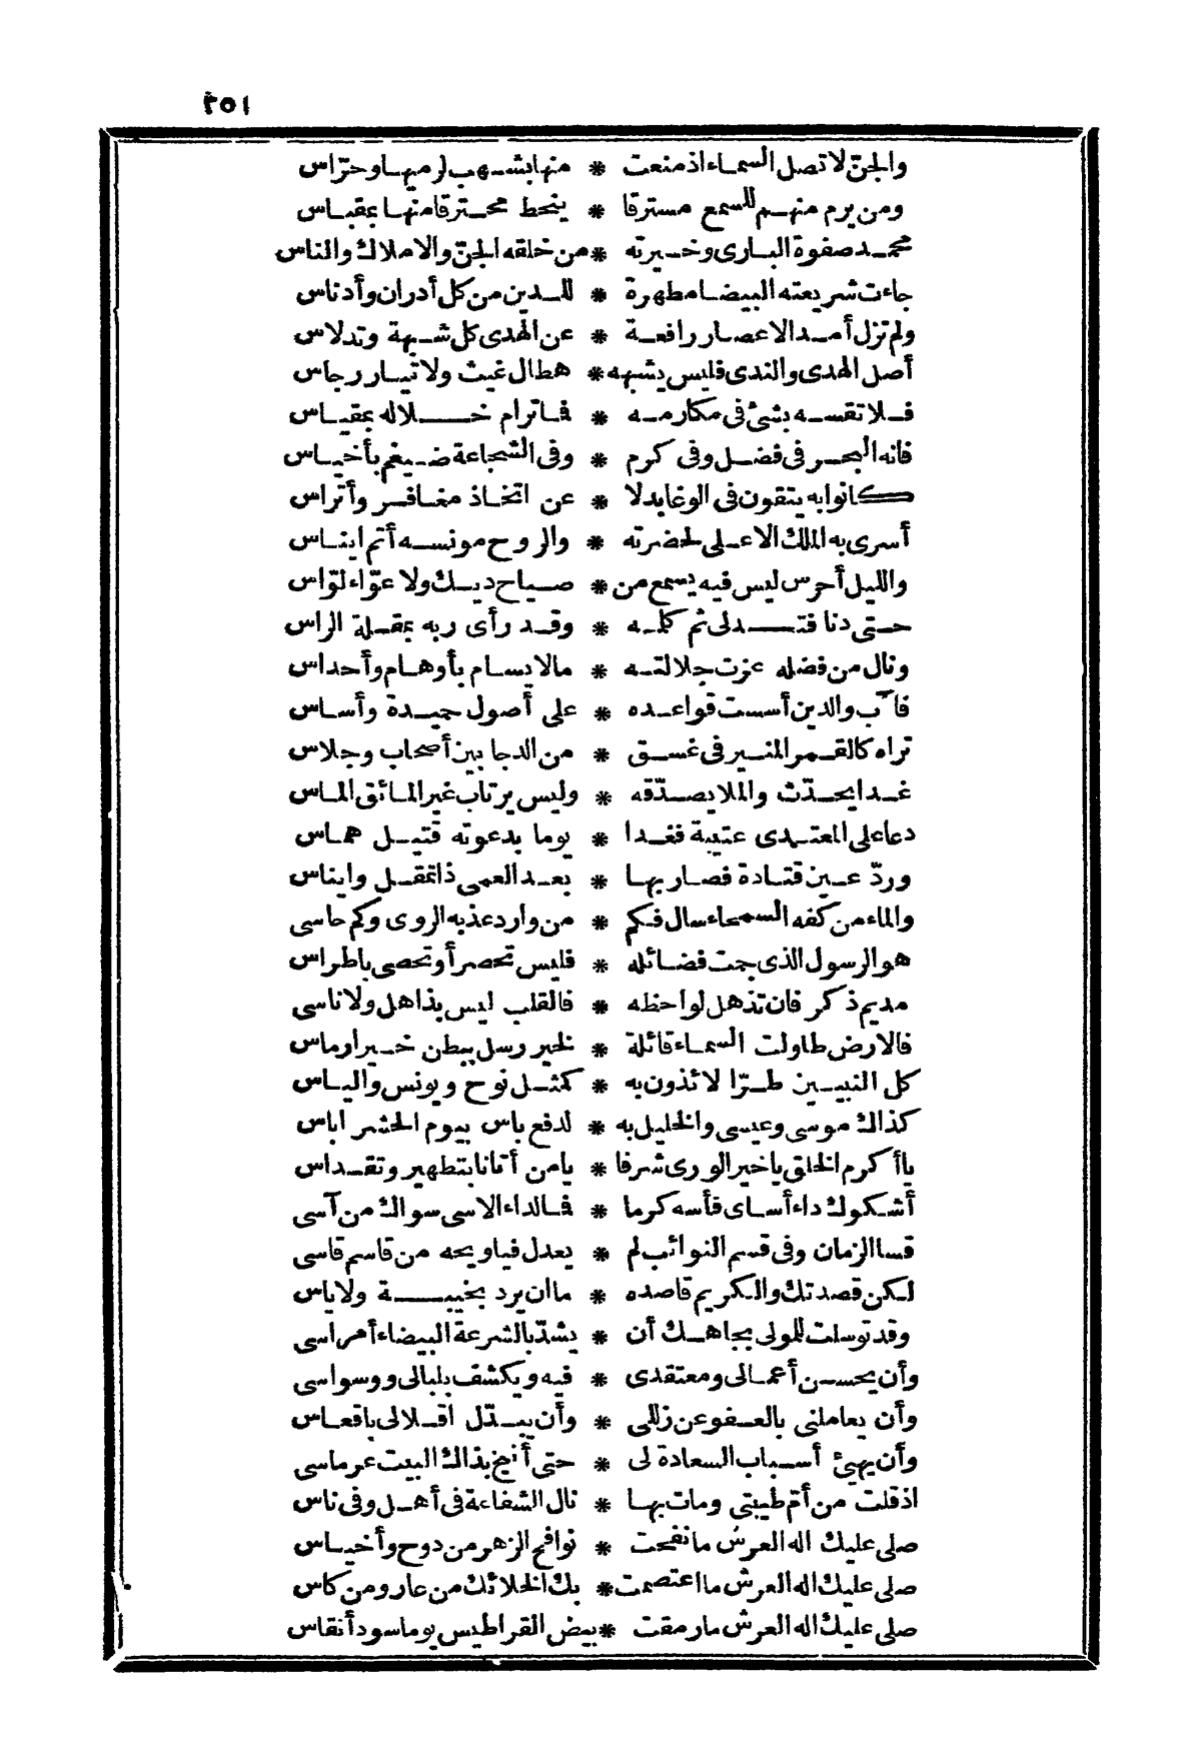 ٢٥١
والجنّ لا تصل السماء اذ منعت * منها بشهب لرميها وحرّاس
ومن يرم منهم للسمع مسترقا * ينحط محترقا منها بمقباس
محمد صفوة البارى وخيرته * من خلقه الجنّ والاملاك والناس
جاءت شريعته البيضا مطهرة * للدين من كل أدران وأدناس
ولم تزل أمد الاعصار رافعة * عن الهدى كل شبهة وتدلاس
أصل الهدى والندى فليس يشبهه * هطال غيث ولا تيار رجاس
فلا تقسه بشئ فى مكارمه * فما ترام خلاله بمقياس
فانه البحر فى فضل وفى كرم * وفى الشجاعة ضيغم بأخياس
كانوا به يتقون فى الوغا بدلا * عن اتخاذ مغافر وأتراس
أسرى به الملك الاعلى لحضرته * والروح مونسه أتم ايناس
والليل أحرس ليس فيه يسمع من * صياح ديك ولا عوّاء لوّاس
حتى دنا فتدلى ثم كله * وقد رأى ربه بمقلة الراس
ونال من فضله عزت جلالته * مالا يسام بأوهام وأحداس
فآب والدين أسست قواعده * على أصول حميدة وأساس
تراه كالقمر المنير فى غسق * من الدجا بين أصحاب وجلاس
غدا يحدّث والملا يصدّقه * وليس يرتاب غير المائق الماس
دعا على المعتدى عتيبة فغدا * يوما بدعوته قتيل هماس
وردّ عين قتادة فصار بها * بعد العمى ذا تمقل وايناس
والماء من كفه السمحاء سال فكم * من وارد عذبه الروى وكم حاسى
هو الرسول الذى جمت فضائله * فليس تحصر أو تحصى باطراس
مديم ذكر فان تذهل لواحظه * فالقلب ليس بذاهل ولا ناسى
فالارض طاولت السماء قائلة * لخير رسل ببطن خير ارماس
كل النبيين طرّا لائذون به * كمثل نوح ويونس والياس
كذاك موسى وعيسى والخليل به * لدفع باس بيوم الحشر اباس
يا أكرم الخلق يا خير الورى شرفا * يا من أتانا بتطهير وتقداس
أشكوك داء أساى فأسه كرما * فما لداء الاسى سواك من آسى
قسا الزمان وفى قسم النوائب لم * يعدل فيا ويحه من قاسم قاسى
لكن قصدتك والكريم قاصده * ما ان يرد بخيبة ولا ياس
وقد توسلت للمولى بجاهك أن * يشدّ بالشرعة البيضاء أمراسى
وأن يحسن أعمالى ومعتقدى * فيه ويكشف بلبالى ووسواسى
وأن يعاملنى بالعفو عن زللى * وأن يبدّل اقلالى باقعاس
وأن يهيئ أسباب السعادة لى * حتى أنيخ بذاك البيت عرماسى
اذ قلت من أمّ طيبتى ومات بها * نال الشفاعة فى أهل وفى ناس
صلى عليك اله العرش ما نفحت * نوافح الزهر من دوح وأخياس
صلى عليك اله العرش ما اعتصمت * بك الخلائك من عار ومن كاس
صلى عليك اله العرش ما رمقت * بيض القراطيس يوما سود أنقاس